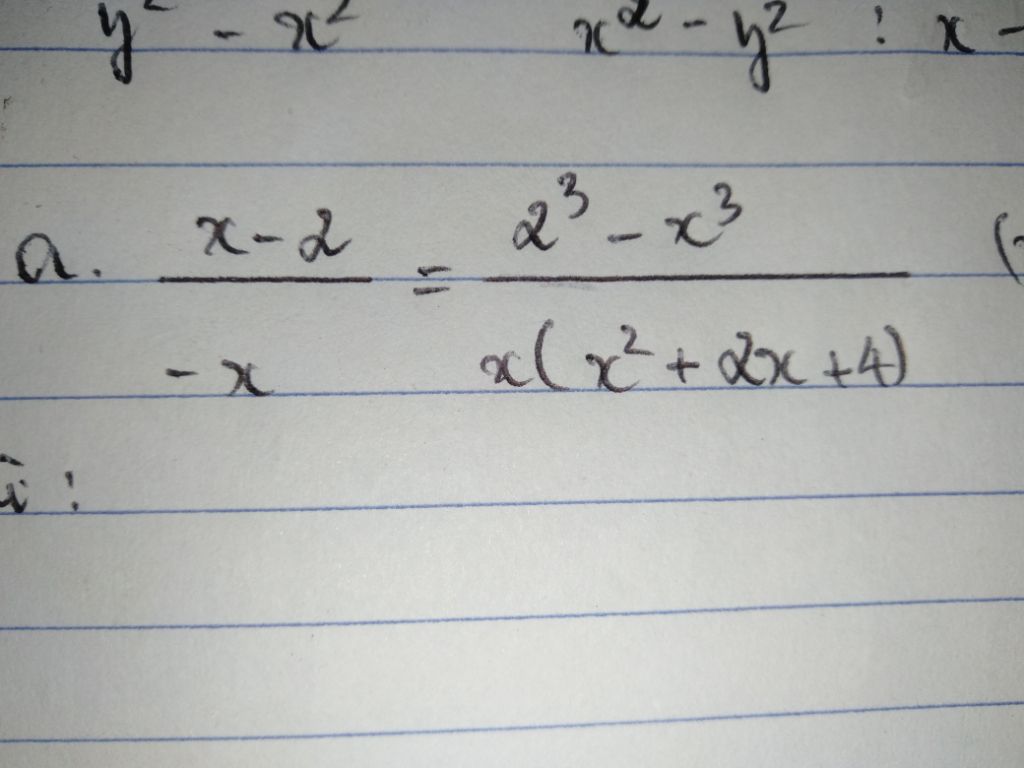 y² - x² x² - y² : x -
a. \frac{x-2}{-x} = \frac{2³ - x³}{x(x² + 2x + 4)} (
: